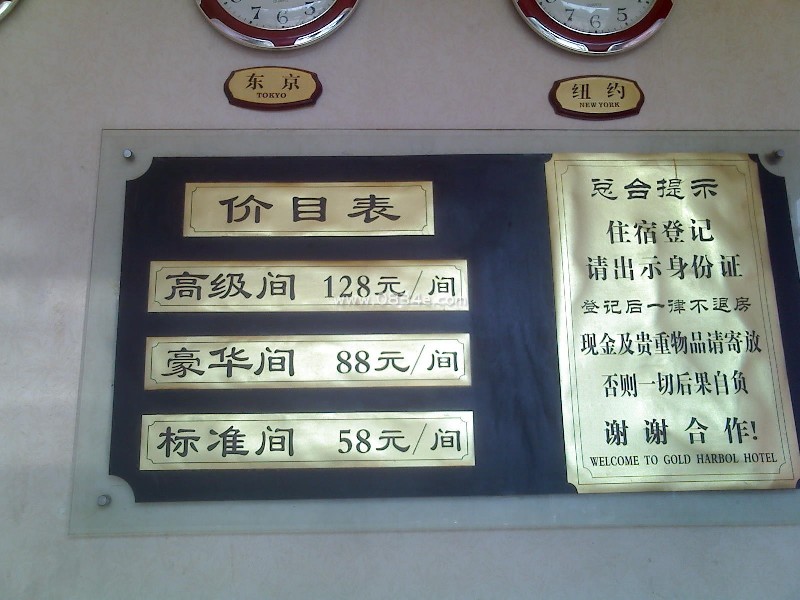 7 6 5
7 6 5
东京
TOKYO
纽约
NEW YORK
价目表
高级间 128元/间
豪华间 88元/间
标准间 58元/间
总台提示
住宿登记
请出示身份证
登记后一律不退房
现金及贵重物品请寄放
否则一切后果自负
谢谢合作!
WELCOME TO GOLD HARBOL HOTEL